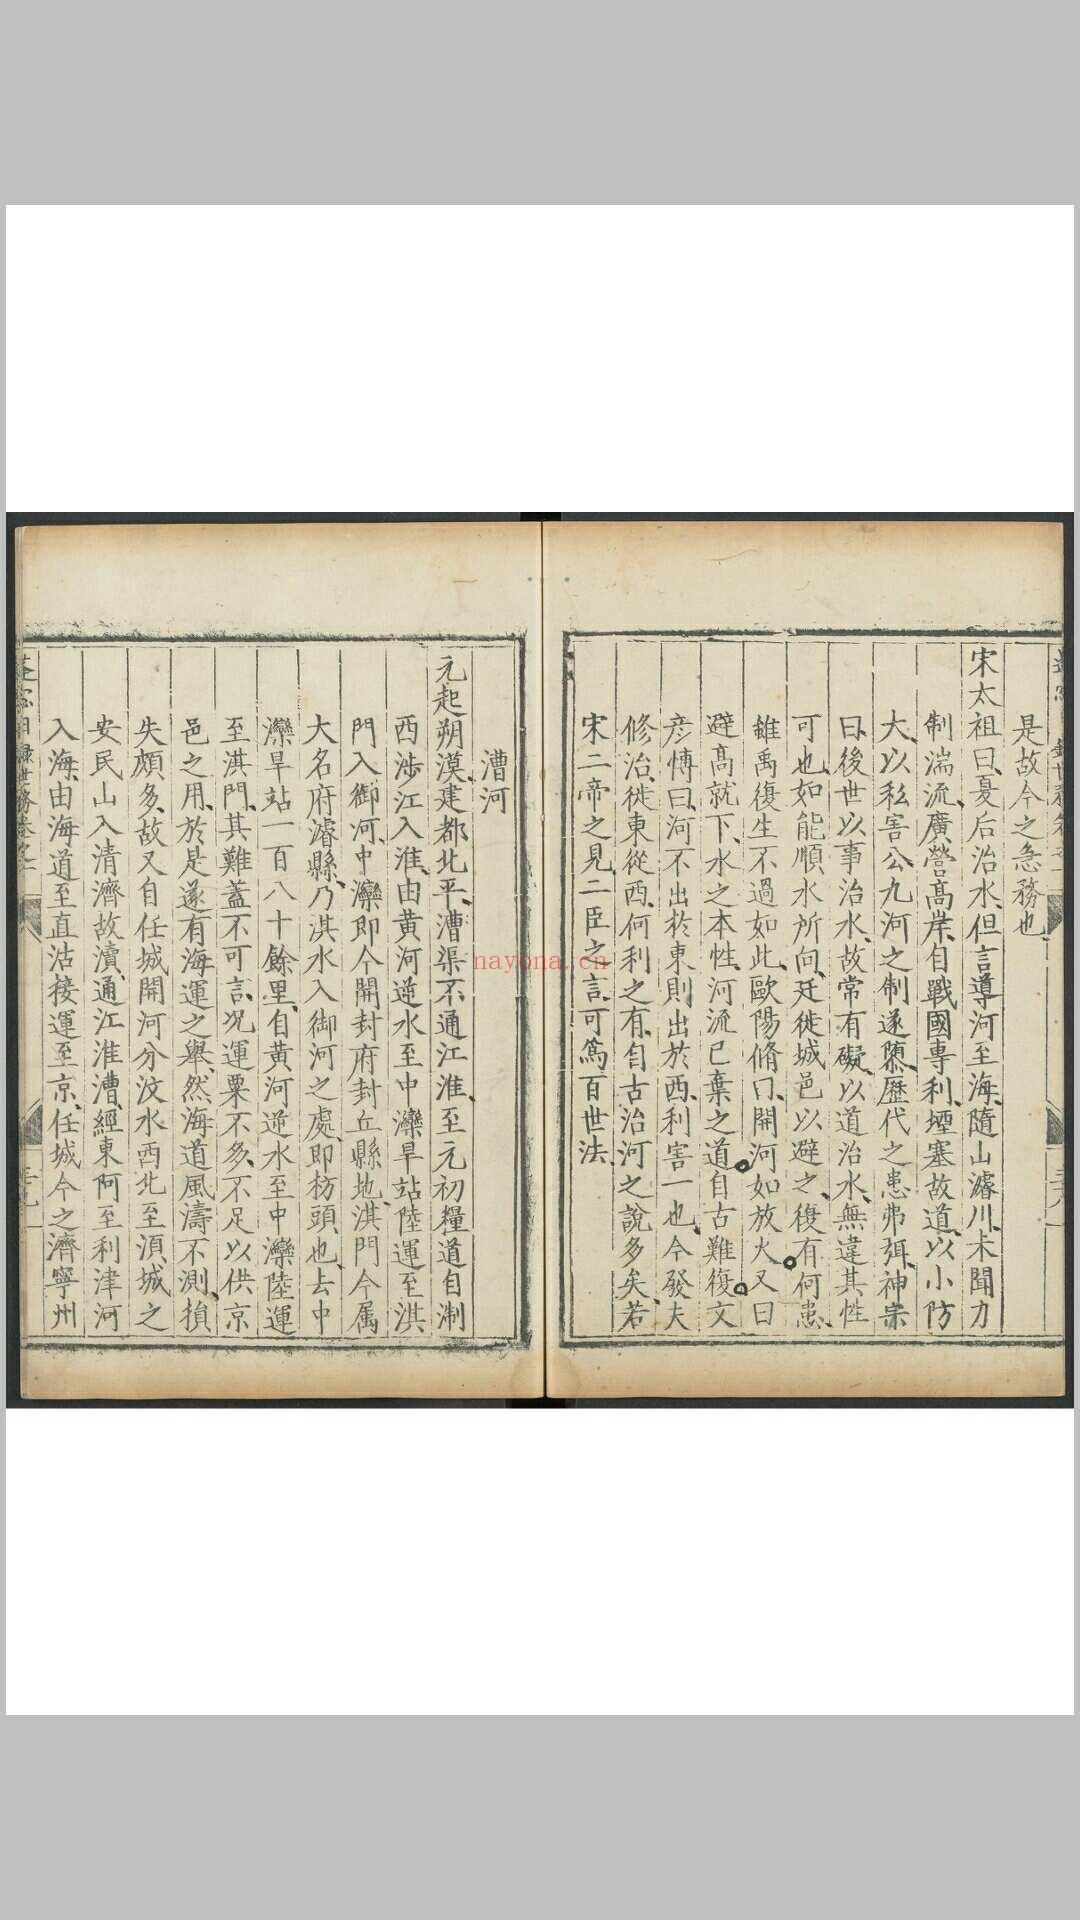 是故今之急務也
宋太祖曰夏后治水但言導河至海隨山濬川未聞力
制湍流廣營高岸自戰國專利堙塞故道以小防
大以私害公九河之制遂隳歷代之患弗弭神宗
曰後世以事治水故常有礙以道治水無違其性
可也如能順水所向迁徙城邑以避之復有何患
雖禹復生不過如此歐陽脩曰開河如放火又曰
避高就下水之本性河流已棄之道自古難復文
彦博曰河不出於東則出於西利害一也今發夫
修治徙東從西何利之有自古治河之說多矣若
宋二帝之見二臣之言可為百世法
漕河
元起朔漠建都北平漕渠不通江淮至元初糧道自浙
西涉江入淮由黄河逆水至中灤旱站陸運至淇
門入御河中灤即今開封府封丘縣地淇門今属
大名府濬縣乃淇水入御河之處即枋頭也去中
灤旱站一百八十餘里自黄河逆水至中灤陸運
至淇門其難蓋不可言况運粟不多不足以供京
邑之用於是遂有海運之舉然海道風濤不測損
失頗多故又自任城開河分汶水西北至須城之
安民山入清濟故瀆通江淮漕經東阿至利津河
入海由海道至直沽接運至京任城今之濟寧州
日録世務卷之一
nayona.cn